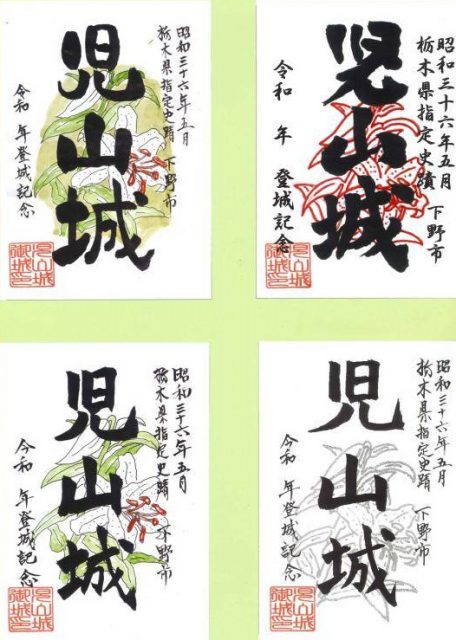 昭和三十六年五月
栃木県指定史蹟 下野市
児山城
令和 年登城記念
児山城
御城印
昭和三十六年五月
栃木県指定史蹟 下野市
児山城
令和 年 登城記念
児山城
御城印
昭和三十六年五月
栃木県指定史蹟 下野市
児山城
令和 年登城記念
児山城
御城印
昭和三十六年五月
栃木県指定史蹟 下野市
児山城
令和 年登城記念
児山城
御城印